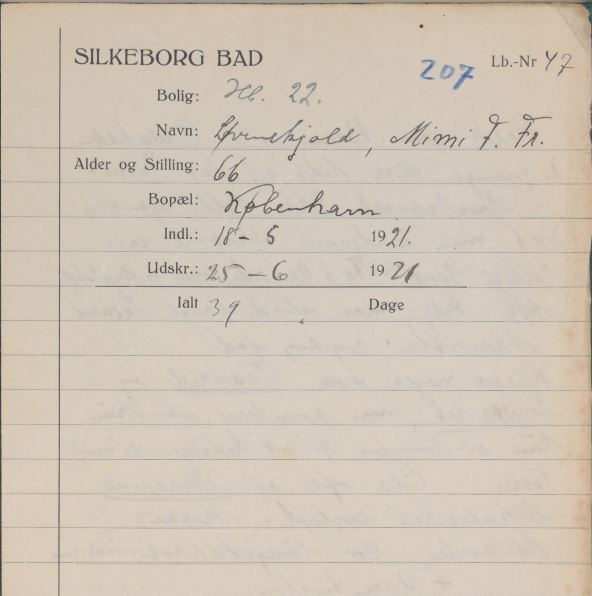 SILKEBORG BAD
207
Lb.-Nr 47
Bolig: Hb. 22.
Navn: Løvenskjold, Mimi F. Fr.
Alder og Stilling: 66
Bopæl: København
Indl.: 18-5 1921.
Udskr.: 25-6 1921
Ialt 39 Dage